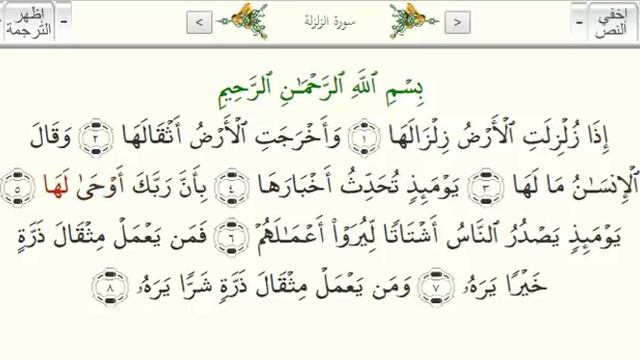 إخفي النص
سورة الزلزلة
إظهر الترجمة
بِسْمِ ٱللَّهِ ٱلرَّحْمَـٰنِ ٱلرَّحِيمِ
إِذَا زُلْزِلَتِ ٱلْأَرْضُ زِلْزَالَهَا ١ وَأَخْرَجَتِ ٱلْأَرْضُ أَثْقَالَهَا ٢ وَقَالَ
ٱلْإِنسَـٰنُ مَا لَهَا ٣ يَوْمَئِذٍ تُحَدِّثُ أَخْبَارَهَا ٤ بِأَنَّ رَبَّكَ أَوْحَىٰ لَهَا ٥
يَوْمَئِذٍ يَصْدُرُ ٱلنَّاسُ أَشْتَاتًا لِّيُرَوْا۟ أَعْمَـٰلَهُمْ ٦ فَمَن يَعْمَلْ مِثْقَالَ ذَرَّةٍ
خَيْرًا يَرَهُۥ ٧ وَمَن يَعْمَلْ مِثْقَالَ ذَرَّةٍ شَرًّا يَرَهُۥ ٨